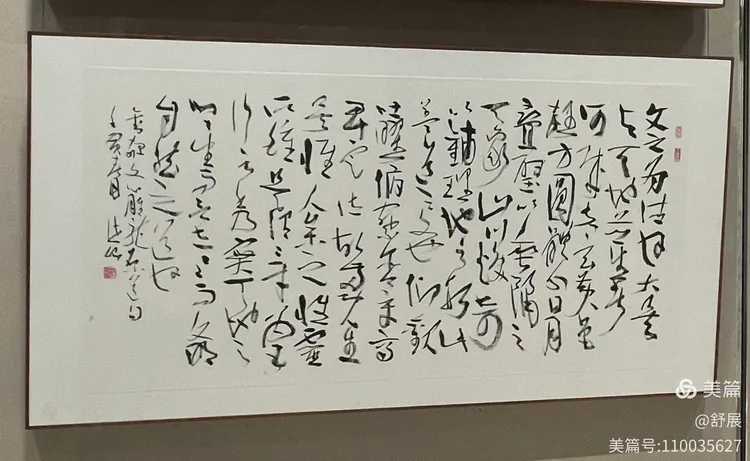 文之为德也大矣
与天地并生者
何哉夫玄黄色
杂方圓體分日月
疊璧以垂之
山川焕绮
以铺理地之形此
盖道之文也仰觀
曜俯察含章高
卑定位故两生
矣惟人参之性靈
所鍾是謂三才为五
行之秀實天地之
心生而言立言立而文明
自然之道也
文心雕龙原道句
壬寅月
美篇
@舒展
美篇号:110035627